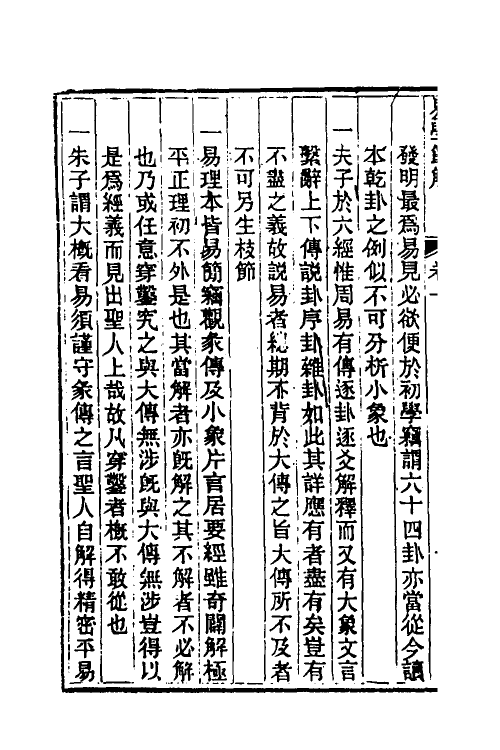 發明最爲易見必欲便於初學竊謂六十四卦亦當從今讀
本乾卦之例似不可分析小象也
一夫子於六經惟周易有傳逐卦逐爻解釋而又有大象文言
繫辭上下傳說卦序卦雜卦如此其詳應有者盡有矣豈有
不盡之義故說易者總期不背於大傳之旨大傳所不及者
不可另生枝節
一易理本皆易簡竊觀彖傳及小象片言居要經雖奇闢解極
平正理初不外是也其當解者亦旣解之其不解者不必解
也乃或任意穿鑿究之與大傳無涉旣與大傳無涉豈得以
是爲經義而見出聖人上哉故從穿鑿者槪不敢從也
一朱子謂大槪看易須謹守彖傳之言聖人自解得精密平易